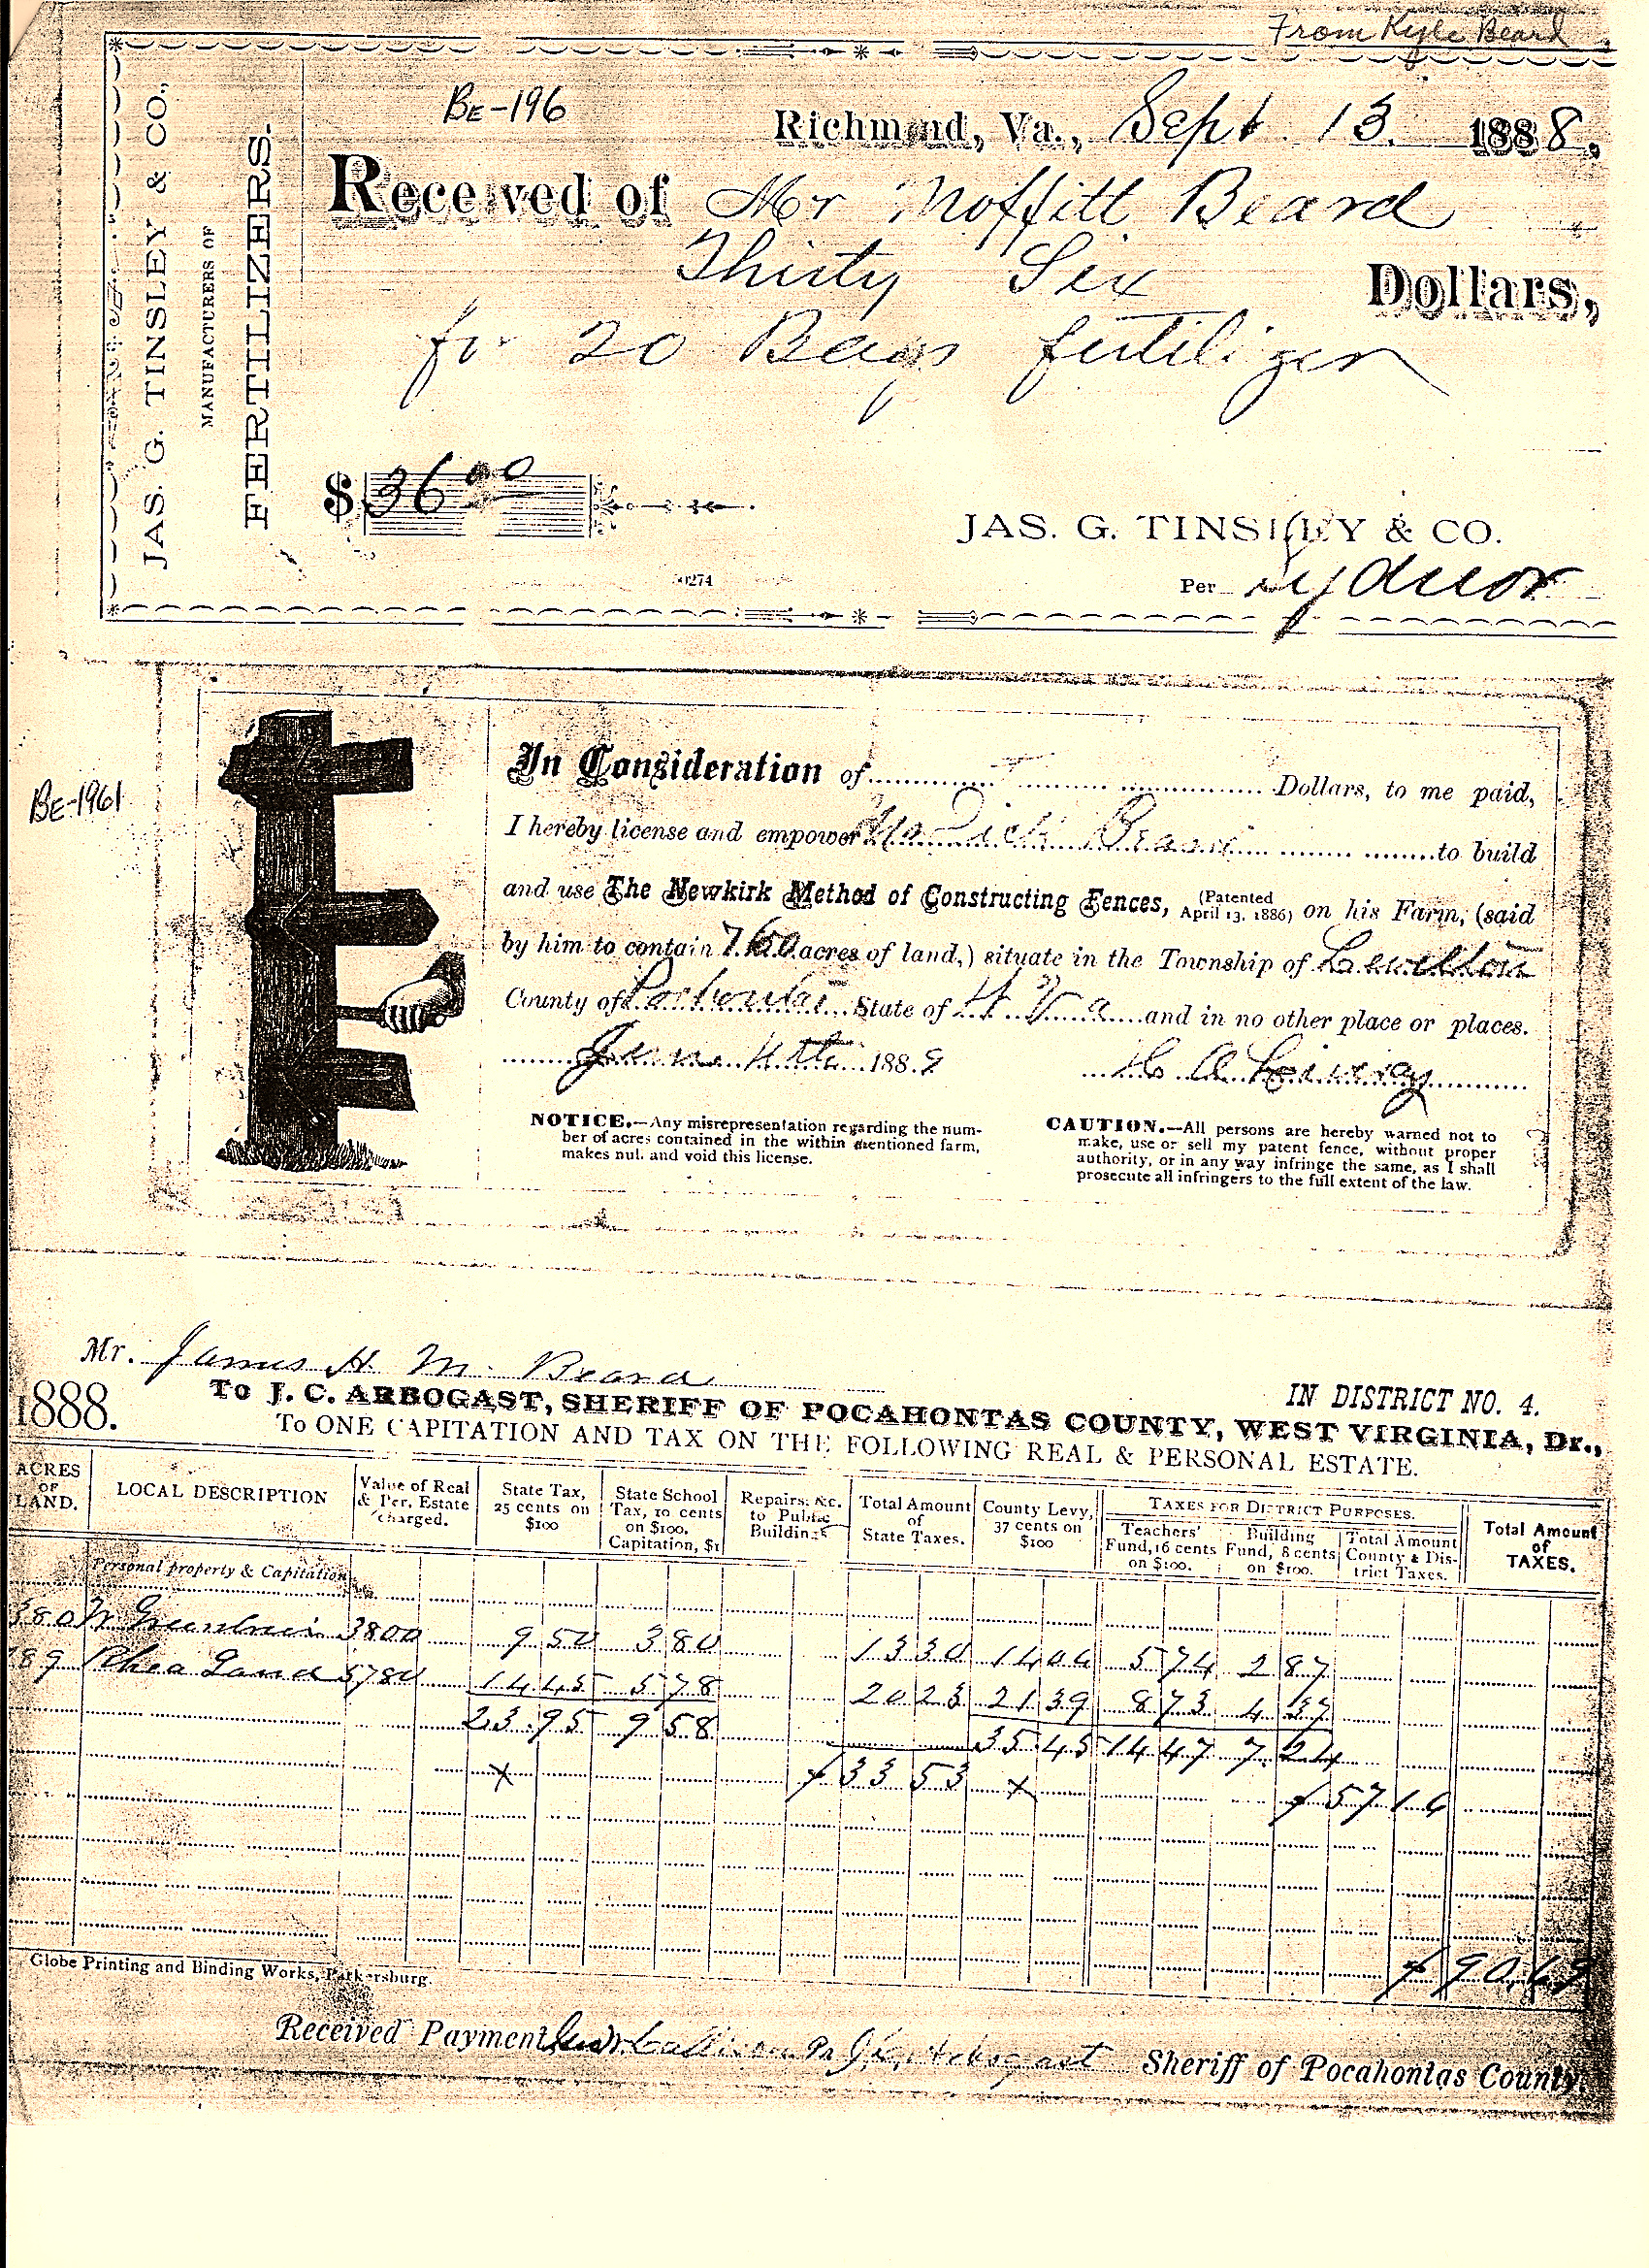 From Kyle Beard
BE-196
Richmond, Va., Sept. 13. 1888,
JAS. G. TINSLEY & CO.,
MANUFACTURERS OF
FERTILIZERS.
Received of Mr Moffitt Beard
Thirty Six Dollars,
for 20 Bags fertilizer
$ 36 00
JAS. G. TINSLEY & CO.
Per Sydnor
BE-1961
In Consideration of Dollars, to me paid,
I hereby license and empower Beard to build
and use The Newkirk Method of Constructing Fences, (Patented April 13, 1886) on his Farm, (said
by him to contain 760 acres of land,) situate in the Township of
County of State of W Va and in no other place or places.
188
NOTICE.—Any misrepresentation regarding the num-
ber of acres contained in the within mentioned farm,
makes nul. and void this license.
CAUTION.—All persons are hereby warned not to
make, use or sell my patent fence, without proper
authority, or in any way infringe the same, as I shall
prosecute all infringers to the full extent of the law.
Mr. James H. M. Beard
1888.
To J. C. ARBOGAST, SHERIFF OF POCAHONTAS COUNTY, WEST VIRGINIA, Dr.,
IN DISTRICT NO. 4.
To ONE CAPITATION AND TAX ON THE FOLLOWING REAL & PERSONAL ESTATE.
ACRES OF LAND.
LOCAL DESCRIPTION
Value of Real & Per. Estate charged.
State Tax, 25 cents on $100
State School Tax, 10 cents on $100. Capitation, $1
Repairs, &c. to Public Buildings
Total Amount of State Taxes.
County Levy, 37 cents on $100
TAXES FOR DISTRICT PURPOSES.
Teachers' Fund, 16 cents on $100.
Building Fund, 8 cents on $100.
Total Amount County & Dis- trict Taxes.
Total Amount of TAXES.
Personal property & Capitation
380 3800 9 50 3 80 13 30 14 06 5 74 2 87
189 Rhea Land 5780 14 45 5 78 20 23 21 39 8 73 4 37
23 95 9 58 35 45 14 47 7 24
33 53 57 16
90.69
Globe Printing and Binding Works, Parkersburg.
Received Payment, Callison Pr J. C. Arbogast Sheriff of Pocahontas County.